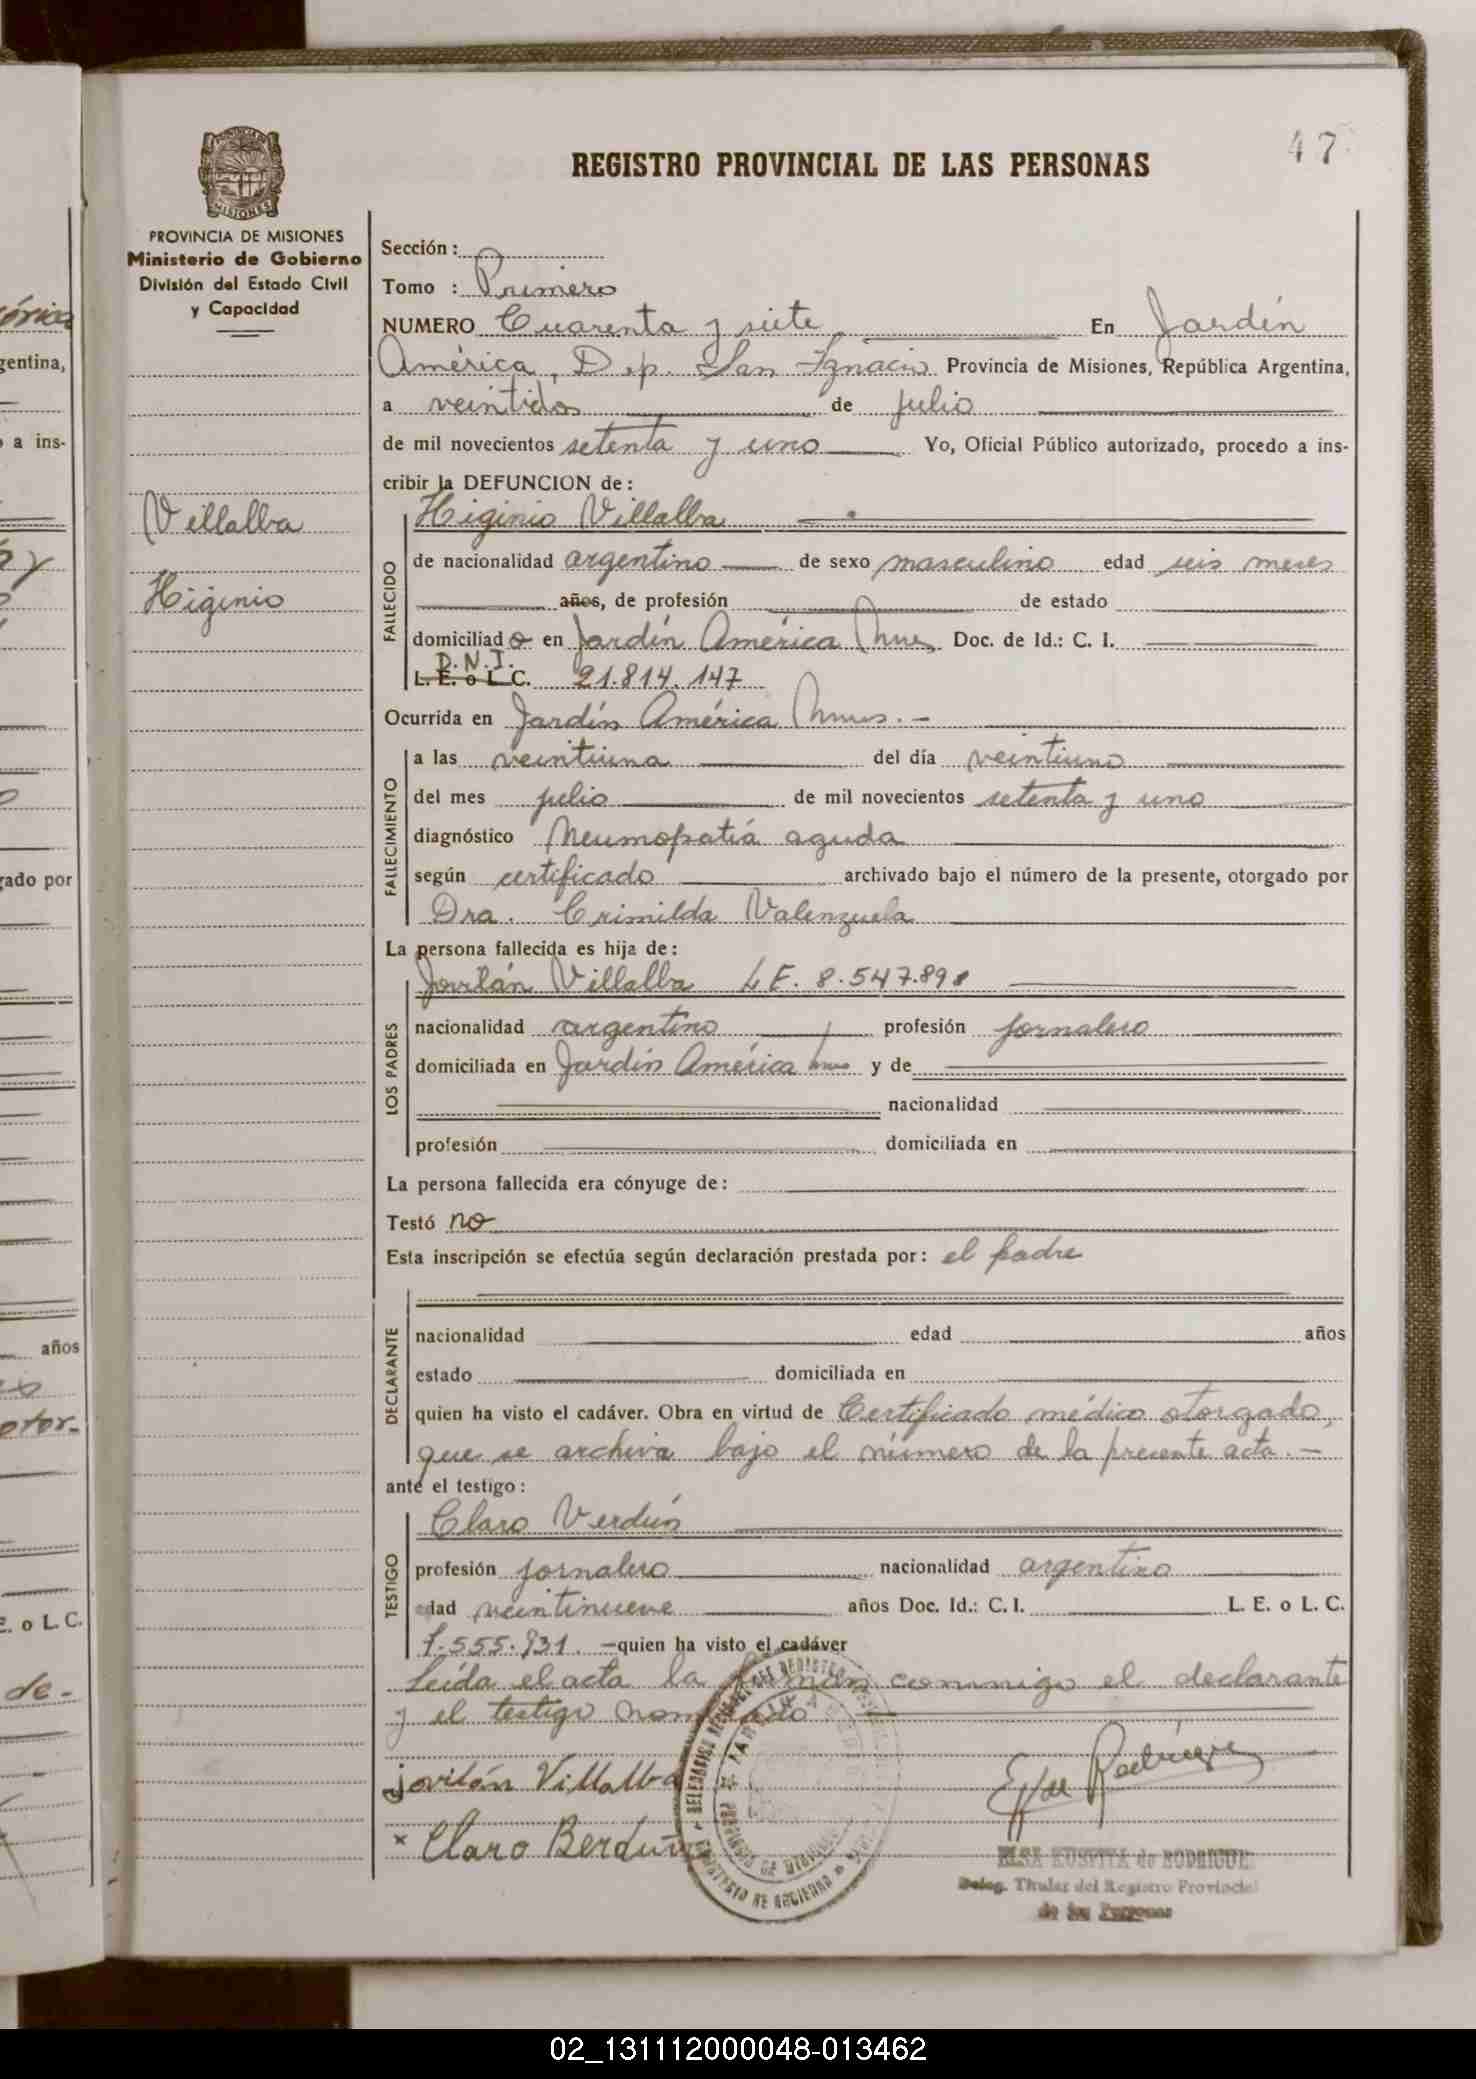 47
REGISTRO PROVINCIAL DE LAS PERSONAS
PROVINCIA DE MISIONES
Ministerio de Gobierno
División del Estado Civil
y Capacidad
Villalba
Higinio
Sección :
Tomo : Primero
NUMERO Cuarenta y siete En Jardín
América, Dep. San Ignacio Provincia de Misiones, República Argentina,
a veintidos de julio
de mil novecientos setenta y uno Yo, Oficial Público autorizado, procedo a ins-
cribir la DEFUNCION de :
Higinio Villalba
FALLECIDO
de nacionalidad argentino de sexo masculino edad seis meses
años, de profesión de estado
domiciliado en Jardín América Mnes, Doc. de Id.: C. I.
D.N.I.
L. E. o L. C. 21.814.147
Ocurrida en Jardín América Mnes. -
FALLECIMIENTO
a las veintiuna del día veintiuno
del mes julio de mil novecientos setenta y uno
diagnóstico Neumopatía aguda
según certificado archivado bajo el número de la presente, otorgado por
Dra. Crimilda Valenzuela
La persona fallecida es hija de :
LOS PADRES
Jovilán Villalba L.E. 8.547.898
nacionalidad argentino profesión jornalero
domiciliada en Jardín América Mnes y de
nacionalidad
profesión domiciliada en
La persona fallecida era cónyuge de :
Testó no
Esta inscripción se efectúa según declaración prestada por : el padre
DECLARANTE
nacionalidad edad años
estado domiciliada en
quien ha visto el cadáver. Obra en virtud de Certificado médico otorgado,
que se archiva bajo el número de la presente acta. -
ante el testigo :
TESTIGO
Claro Verdún
profesión jornalero nacionalidad argentino
edad veintinueve años Doc. Id.: C. I. L. E. o L. C.
7.555.931. - quien ha visto el cadáver
Leída el acta la firman conmigo el declarante
y el testigo nombrado
jovilán Villalba
x Claro Berdún
ELSA KUSPITA de RODRIGUEZ
Deleg. Titular del Registro Provincial
de las Personas
02_131112000048-013462